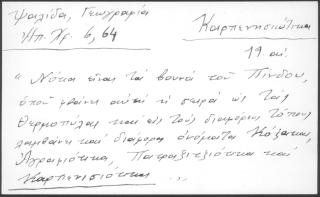 Ψαλίδα, Γεωγραφία
Ηπ. Χρ. 6, 64
Καρπενησιώτικα
19 αι.
"Νότια είναι τα βουνά του Πίνδου,
όπου φθάνει αυτή η σειρά ως τας
Θερμοπύλας και εις τους διαφόρους τόπους
λαμβάνει και διάφορα ονόματα Κόζακας,
Αγραφιώτικα, Πατρατζικιώτικα και
Καρπενισιώτικα ...